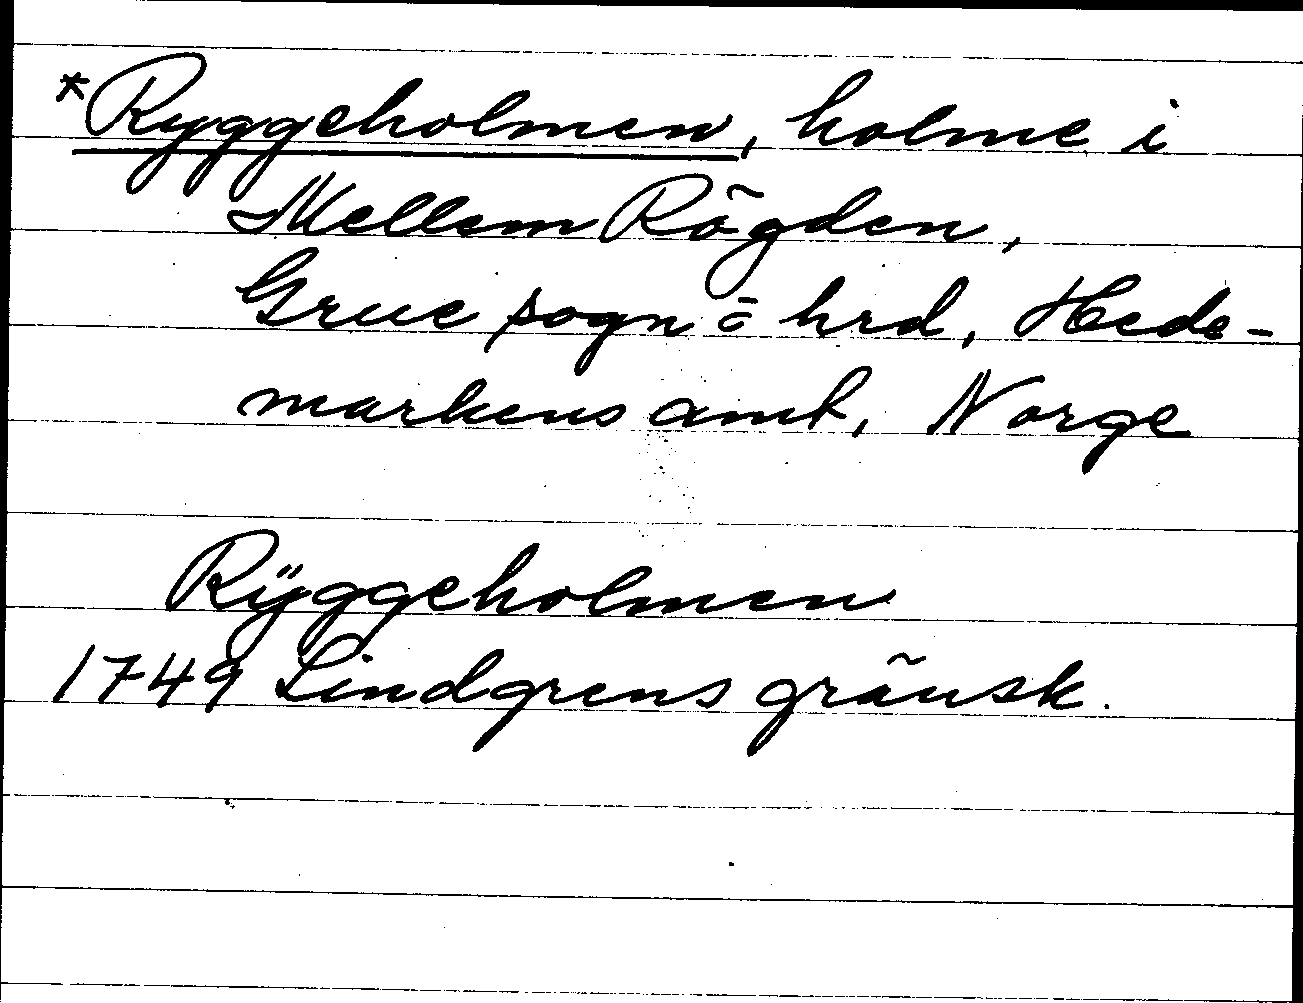 *Ryggeholmen, holme i
Mellem Rögden,
Grue sogn o hrd, Hede-
markens amt, Norge
Rÿggeholmen
1749 Lindgrens gränsk.